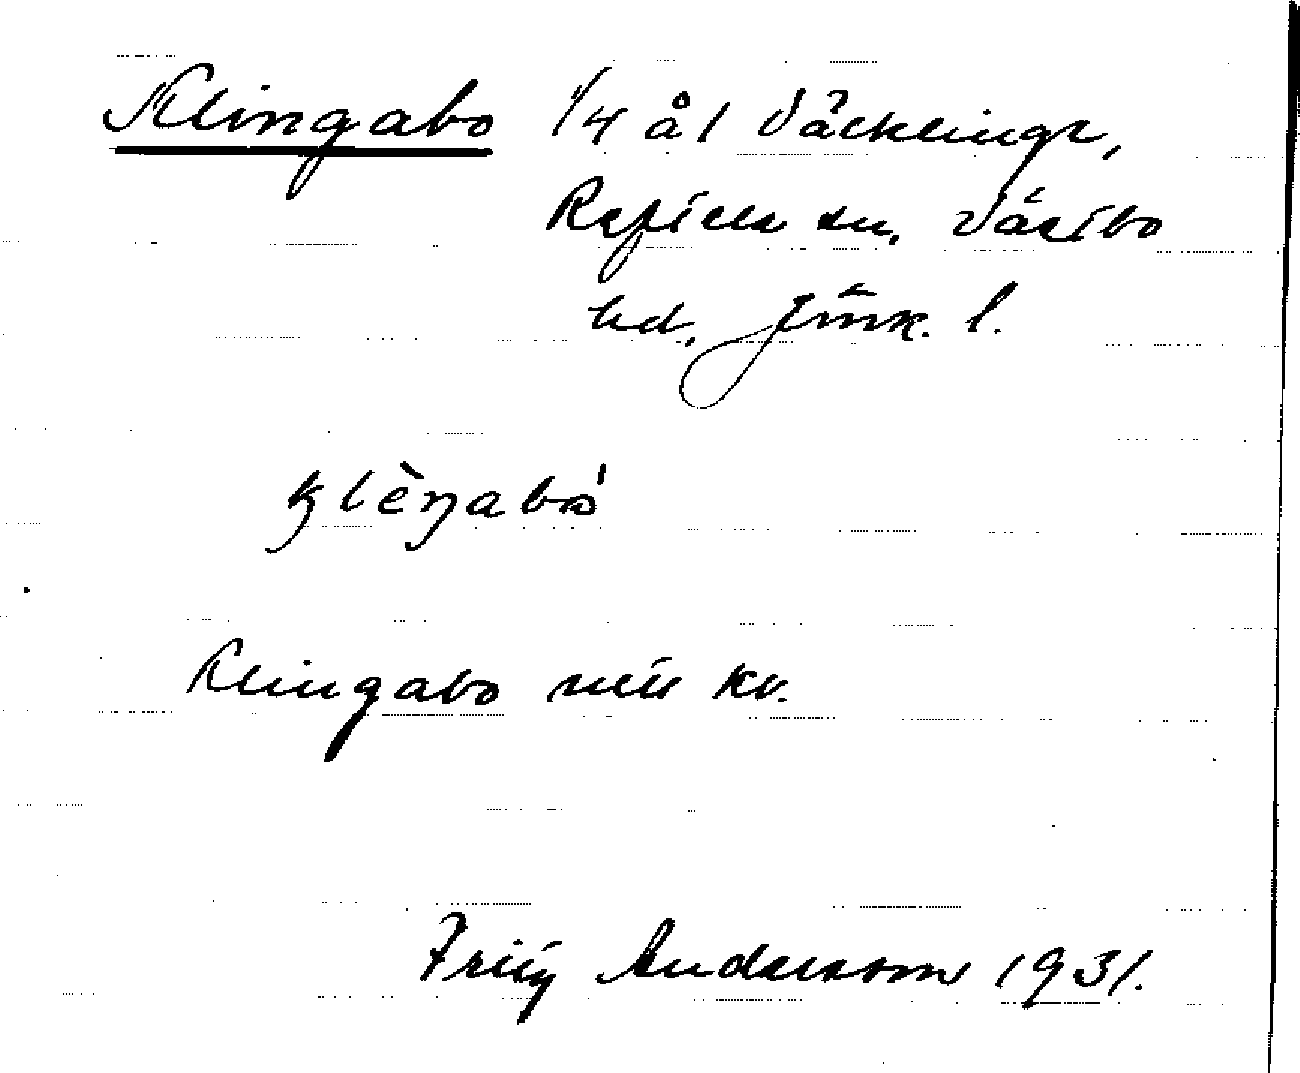 Klingabo 1/4 å 1 Väcklinge,
Reftele sn, Västbo
hd, Jönk. l.
klèŋabó
Klingabo mitt kv.
Fritz Andersson 1931.